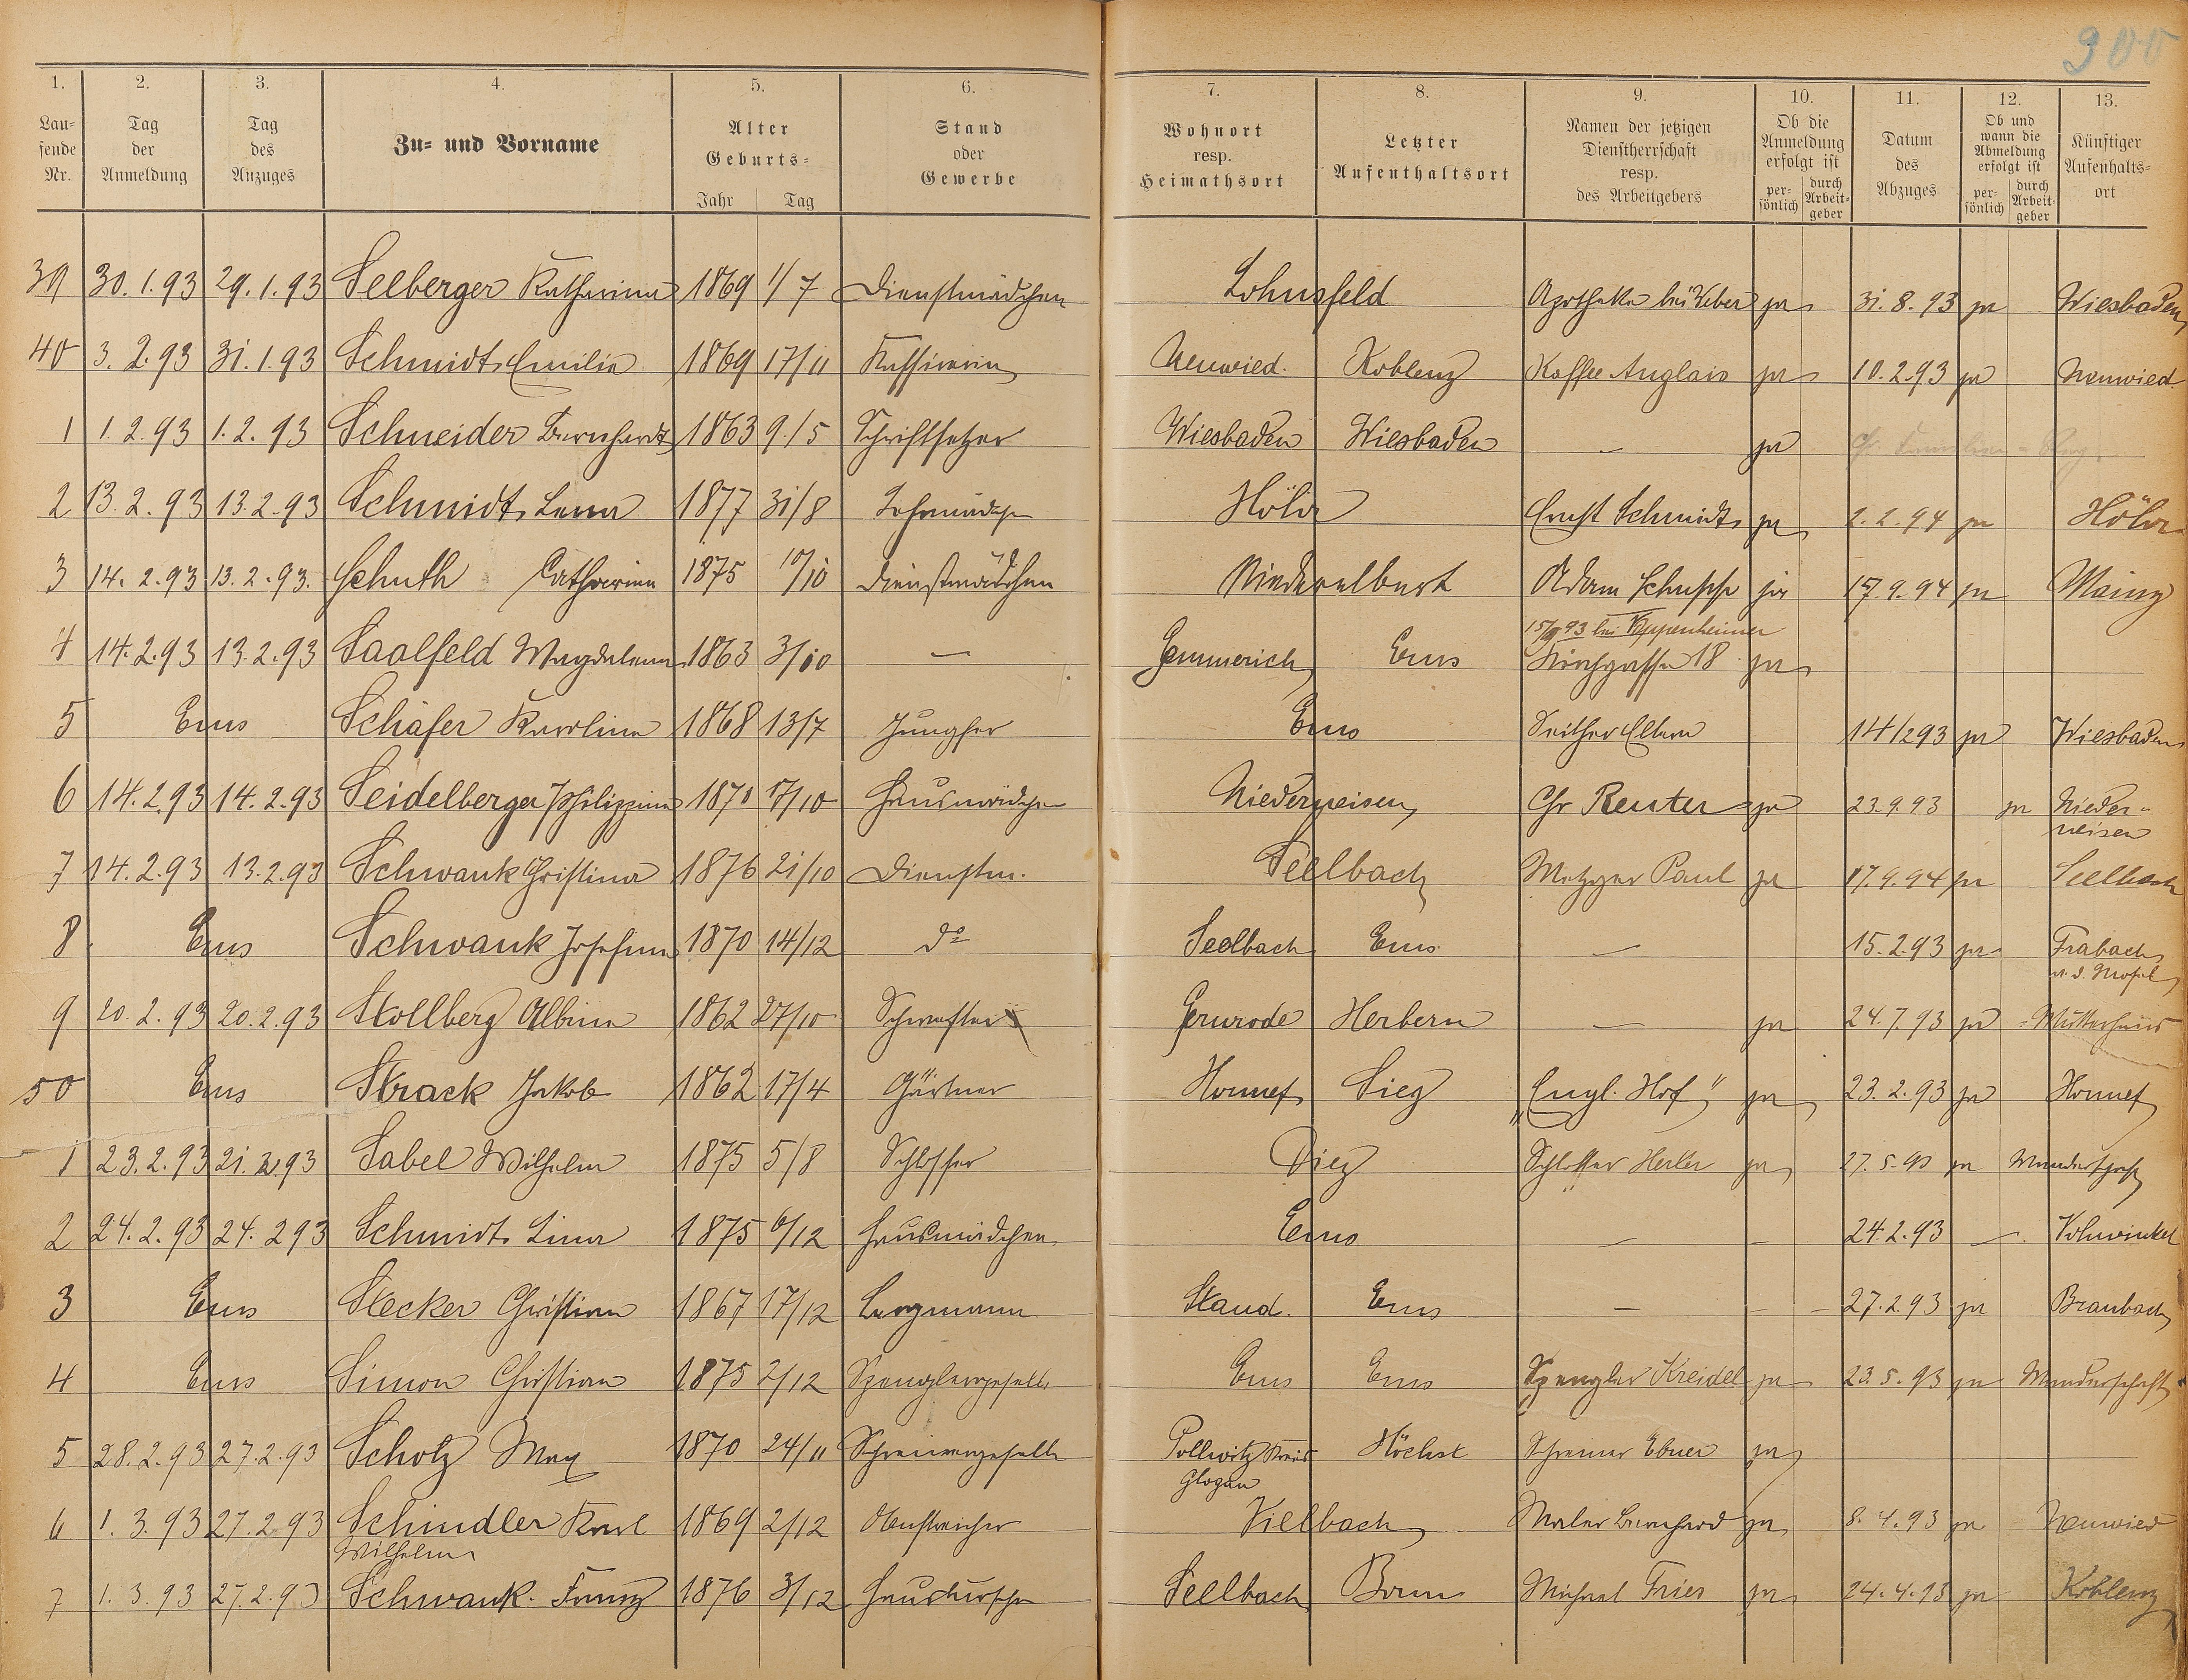 900
1. 2. 3. 4. 5. 6. 7. 8. 9. 10. 11. 12. 13.
Lau=
fende
Nr.
Tag
der
Anmeldung
Tag
des
Anzuges
Zu= und Vorname
Alter
Geburts=
Jahr Tag
Stand
oder
Gewerbe
Wohnort
resp.
Heimathsort
Letzter
Aufenthaltsort
Namen der jetzigen
Dienstherrschaft
resp.
des Arbeitgebers
Ob die
Anmeldung
erfolgt ist
per=
sönlich
durch
Arbeit=
geber
Datum
des
Abzuges
Ob und
wann die
Abmeldung
erfolgt ist
per=
sönlich
durch
Arbeit=
geber
Künftiger
Aufenthalts=
ort
39 30.1.93 29.1.93 Seelberger Katharina 1869 1/7 Dienstmädchen Lohnsfeld Apotheke bei Weber ja 31.8.93 ja Wiesbaden
40 3.2.93 31.1.93 Schmidt Emilie 1869 17/11 Kassirerin Neuwied. Koblenz Kaffee Anglais ja 10.2.93 ja Neuwied
1 1.2.93 1.2.93 Schneider Bernhardt 1863 9/5 Schriftsetzer Wiesbaden Wiesbaden — ja
2 13.2.93 13.2.93 Schmidt Lena 1877 31/8 Lehrmädchen Höhr Ernst Schmidt ja 2.2.94 ja Höhr
3 14.2.93 13.2.93. Schuth Catharina 1875 10/10 Dienstmädchen Niederelbert Adam Schupp ja 17.9.94 ja Mainz
4 14.2.93 13.2.93 Saalfeld Magdalena 1863 3/10 — Gemmerich Ems 15/3 93 bei Keppenheimer
Kirchgasse 18 ja
5 Ems Schäfer Karolina 1868 13/7 Jungfer Ems Seither Eltern 14/2 93 ja Wiesbaden
6 14.2.93 14.2.93 Seidelberger Philippine 1870 17/10 Hausmädchen Niederneisen Chr Reuter ja 23.9.93 ja Nieder=
neisen
7 14.2.93 13.2.93 Schwank Christina 1876 21/10 Dienstm. Seelbach Metzger Paul ja 17.9.94 ja Seelbach
8 Ems Schwank Josefina 1870 14/12 do Seelbach Ems — 15.2.93 ja Trabach
a. d. Mosel
9 20.2.93 20.2.93 Stollberg Albine 1862 27/10 Schwester Gernrode Herbern — ja 24.7.93 ja Mutterhaus
50 Ems Strack Jakob 1862 17/4 Gärtner Honnef Sieg „Engl. Hof" ja 23.2.93 ja Honnef
1 23.2.93 21.2.93 Sabel Wilhelm 1875 5/8 Schlosser Diez Schlosser ja 27.5.93 ja Wanderschaft
2 24.2.93 24.2 93 Schmidt Lina 1875 6/12 Hausmädchen Ems — — 24.2.93 — Vohwinkel
3 Ems Stecker Christian 1867 17/12 Bergmann Staud. Ems — — 27.2.93 ja Braubach
4 Ems Simon Christian 1875 2/12 Spenglergeselle Ems Ems Spengler Kreidel ja 23.5.93 ja Wanderschaft
5 28.2.93 27.2.93 Scholz Max 1870 24/11 Schreinergeselle Pollwitz Kreis
Glogau Höchst Schreiner Ebner ja
6 1.3.93 27.2.93 Schindler Karl
Wilhelm 1869 2/12 Anstreicher Vielbach Maler Bernhard ja 8.4.93 ja Neuwied
7 1.3.93 27.2.93 Schwank Franz 1876 3/12 Hausbursche Seelbach Bonn Michael Fries ja 24.4.93 ja Koblenz